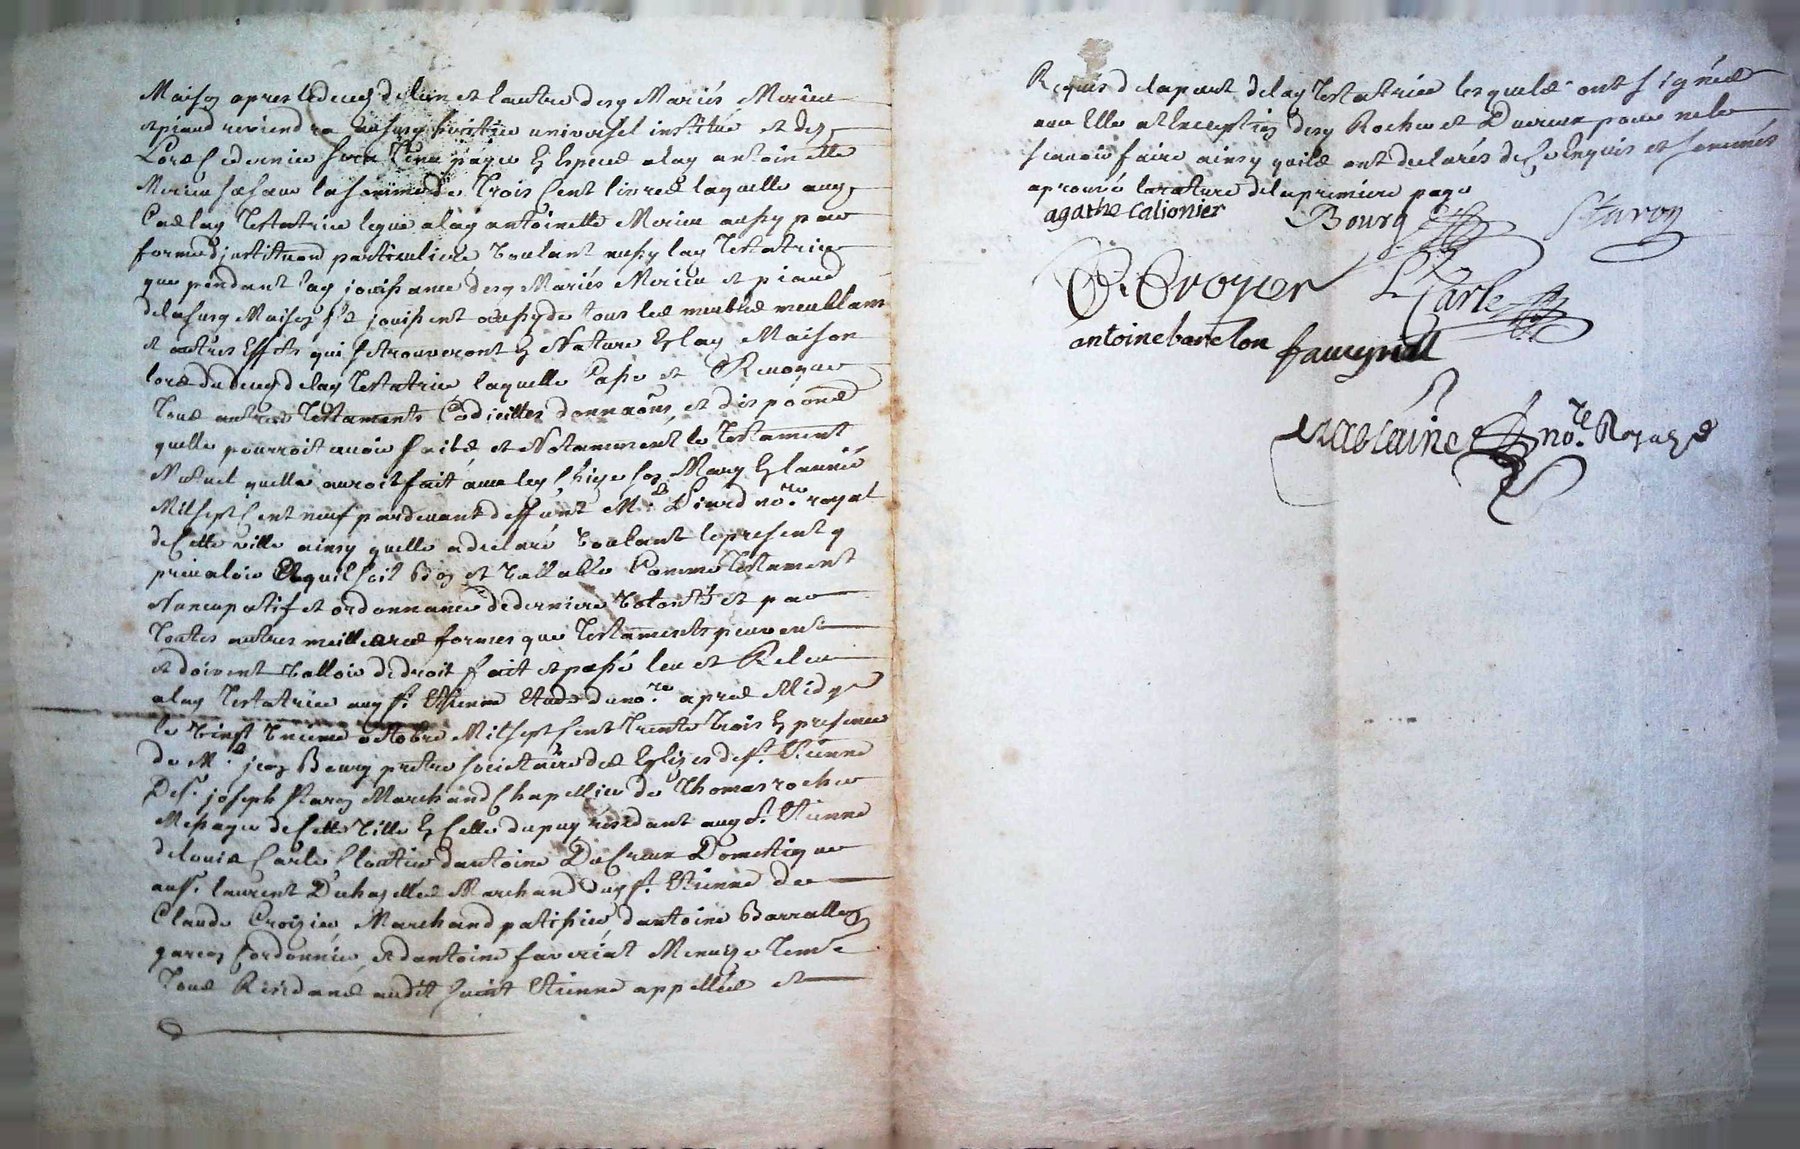 Maison apres le deces de lun et lautre desd Mariés Merieu
et piaud reviendra aususd heritier universel institué et des
Lors ce dernier sera tenu payer En Espece alad antoinette
Merieu sa sœur la somme de Trois Cent livres laquelle aud
Cas lad Testatrice legue alad antoinette Merieu aussy par
forme d'institution particuliere Voulant aussy lad Testatrice
que pendant lad jouissance desd Mariés Merieu et piaud
de lasusd Maison Ils jouissent aussy de tous les meubles meublans
et autres Effets qui se trouveront En Nature En lad Maison
lors du deces de lad Testatrice laquelle Casse et Revoque
Tous autres Testaments Codicilles donnaôns et dispôons
quelle pourroit avoir faites et Notamment le Testament
Mutuel quelle auroit fait avec led son Mary En lannée
Mil sept Cent neuf pardevant deffunt Me Piard nore royal
de Cette ville ainsy quelle a declaré Voulant le present y
prevaloir Et quil soit Bon et Vallable Comme Testament
Nuncupatif et ordonnance de derniere Volonté et par
Toutes autres meilleures formes que Testaments peuvent
et doivent Valloir de droit fait et passé leu et Releu
alad Testatrice aud St Etienne Etude du nore apres Midy
le Vingt octobre Mil sept Cent Trente Trois En presence
de Me jean Bourg pretre societaire des Eglizes de St Etienne
De Sr joseph Staron Marchand Chapellier de Thomas roche
Messager de Cette Ville En Celle du puy residant aud St Etienne
de louis Carle Cloutier dantoine Ducreux Domestique
aud Sr laurent Marchand dud St Etienne de
Claude Croizier Marchand patissier dantoine Barrallon
garçon Cordonnier et dantoine faveriat Menuzier Temes
Tous Residans audit saint Etienne appellés et
Requis de la part de lad Testatrice lesquels ont signés
avec Elle a lexception desd Roche et Ducreux pour ne le
scavoir faire ainsy quils ont declarés de ce Enquis et sommés
aprouvé la rature de la premiere page
agathe calionier Bourg Staron
C. Croyzier L. Carle
antoine barelon faveyriat
nore Royal